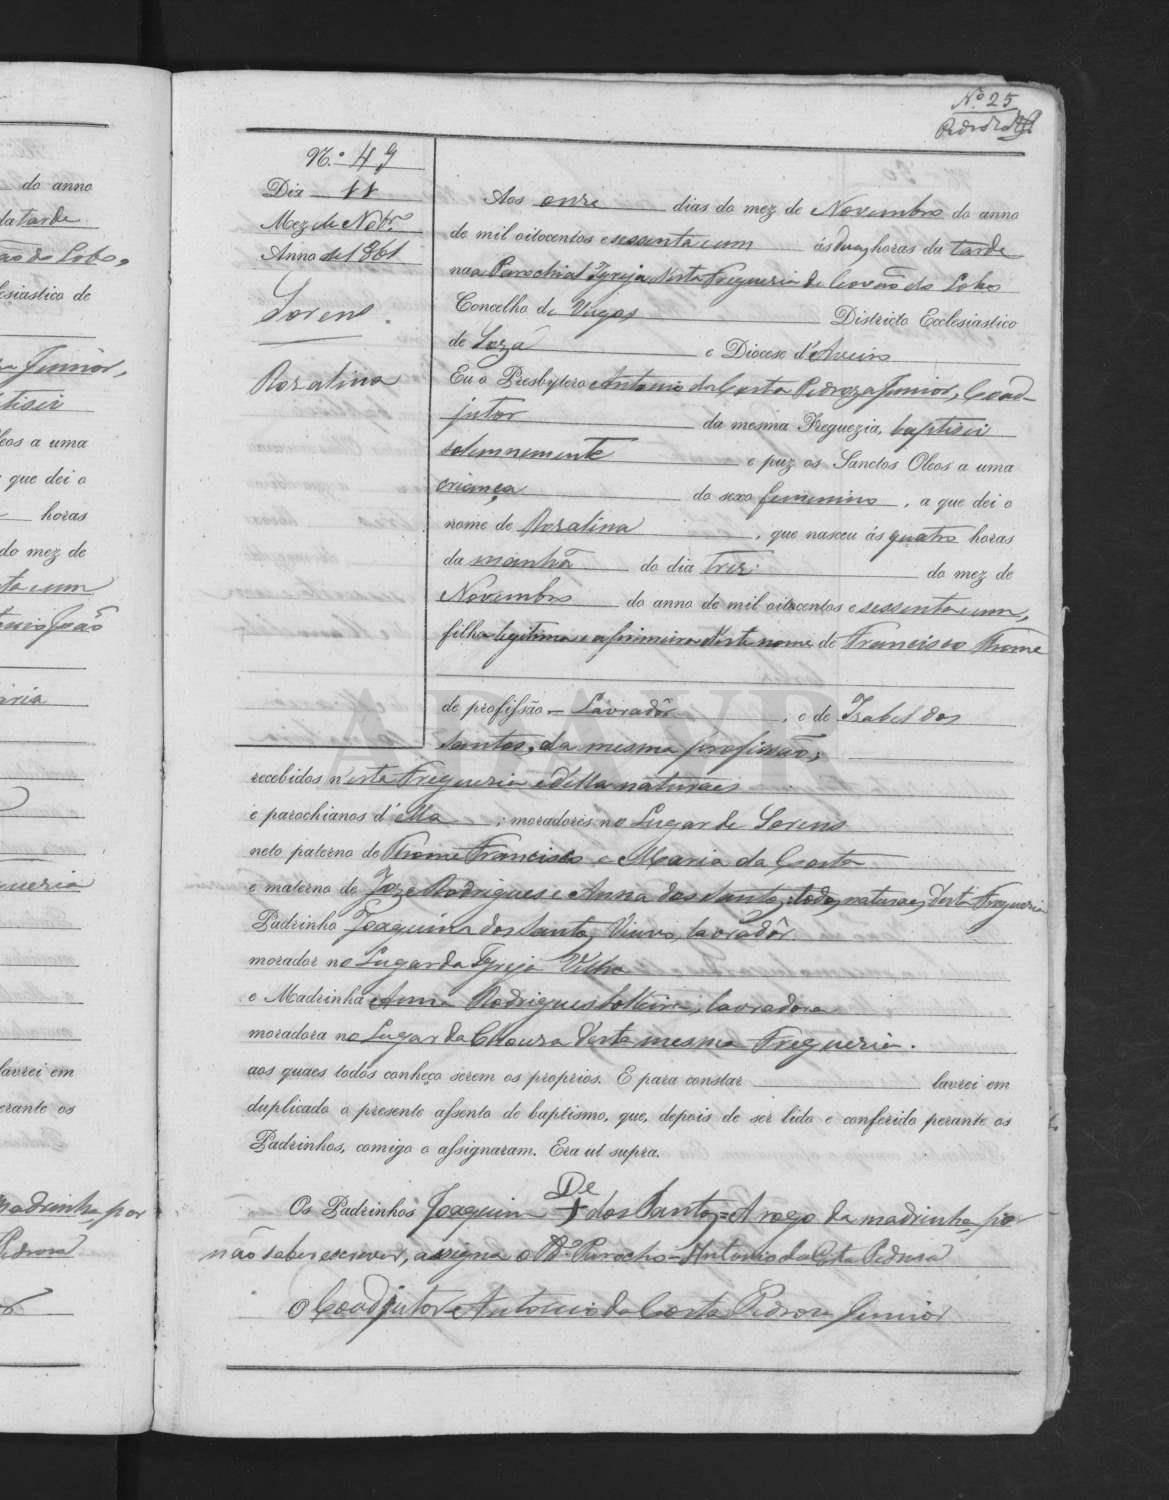 Nº 25
N.º 49
Dia 11
Mez de Nobrº
Anno de 1861
Sorens.
Rozalina
Aos onze dias do mez de Novembro do anno
de mil oitocentos e sessenta e um ás duas horas da tarde
na Parochial Igreja desta Freguezia de Covão do Lobo
Concelho de Vagos Districto Ecclesiastico
de Soza e Diocese d'Aveiro
Eu o Presbytero Antonio da Costa Pedroza Junior, Coad-
jutor da mesma Freguezia, baptisei
solemnemente e puz os Sanctos Oleos a uma
criança do sexo femenino, a que dei o
nome de Rozalina, que nasceu ás quatro horas
da manhã do dia trez do mez de
Novembro do anno de mil oitocentos e sessenta e um,
filha legitima e a primeira deste nome de Francisco Thomé
de profissão - Lavradôr, e de Izabel dos
Santos, da mesma profissão;
recebidos n'esta Freguezia e della naturaes
e parochianos d'ella; moradores no Lugar de Sorens
neto paterno de Thome Francisco e Maria da Costa
e materno de Joze Rodrigues e Anna dos Santos; todos naturaes desta Freguezia
Padrinho Joaquim dos Santos, Viuvo, lavradôr
morador no Lugar da Igreja Velha
e Madrinha Anna Rodrigues Solteira, lavradora
moradora no Lugar da Choura desta mesma Freguezia.
aos quaes todos conheço serem os proprios. E para constar lavrei em
duplicado o presente assento de baptismo, que, depois de ser lido e conferido perante os
Padrinhos, comigo o assignaram. Era ut supra.
De
Os Padrinhos Joaquim + dos Santos = A rogo da madrinha por
não saber escrever, assigna o Rdº Parocho - Antonio da Costa Pedroza
O Coadjutor Antonio da Costa Pedroza Junior
do anno
da tarde
ão do Lobo,
esiastico de
a Junior,
tisei
leos a uma
que dei o
horas
do mez de
ta e um
João
aria
guezia
lavrei em
perante os
madrinha por
Pedroza
ADAVR